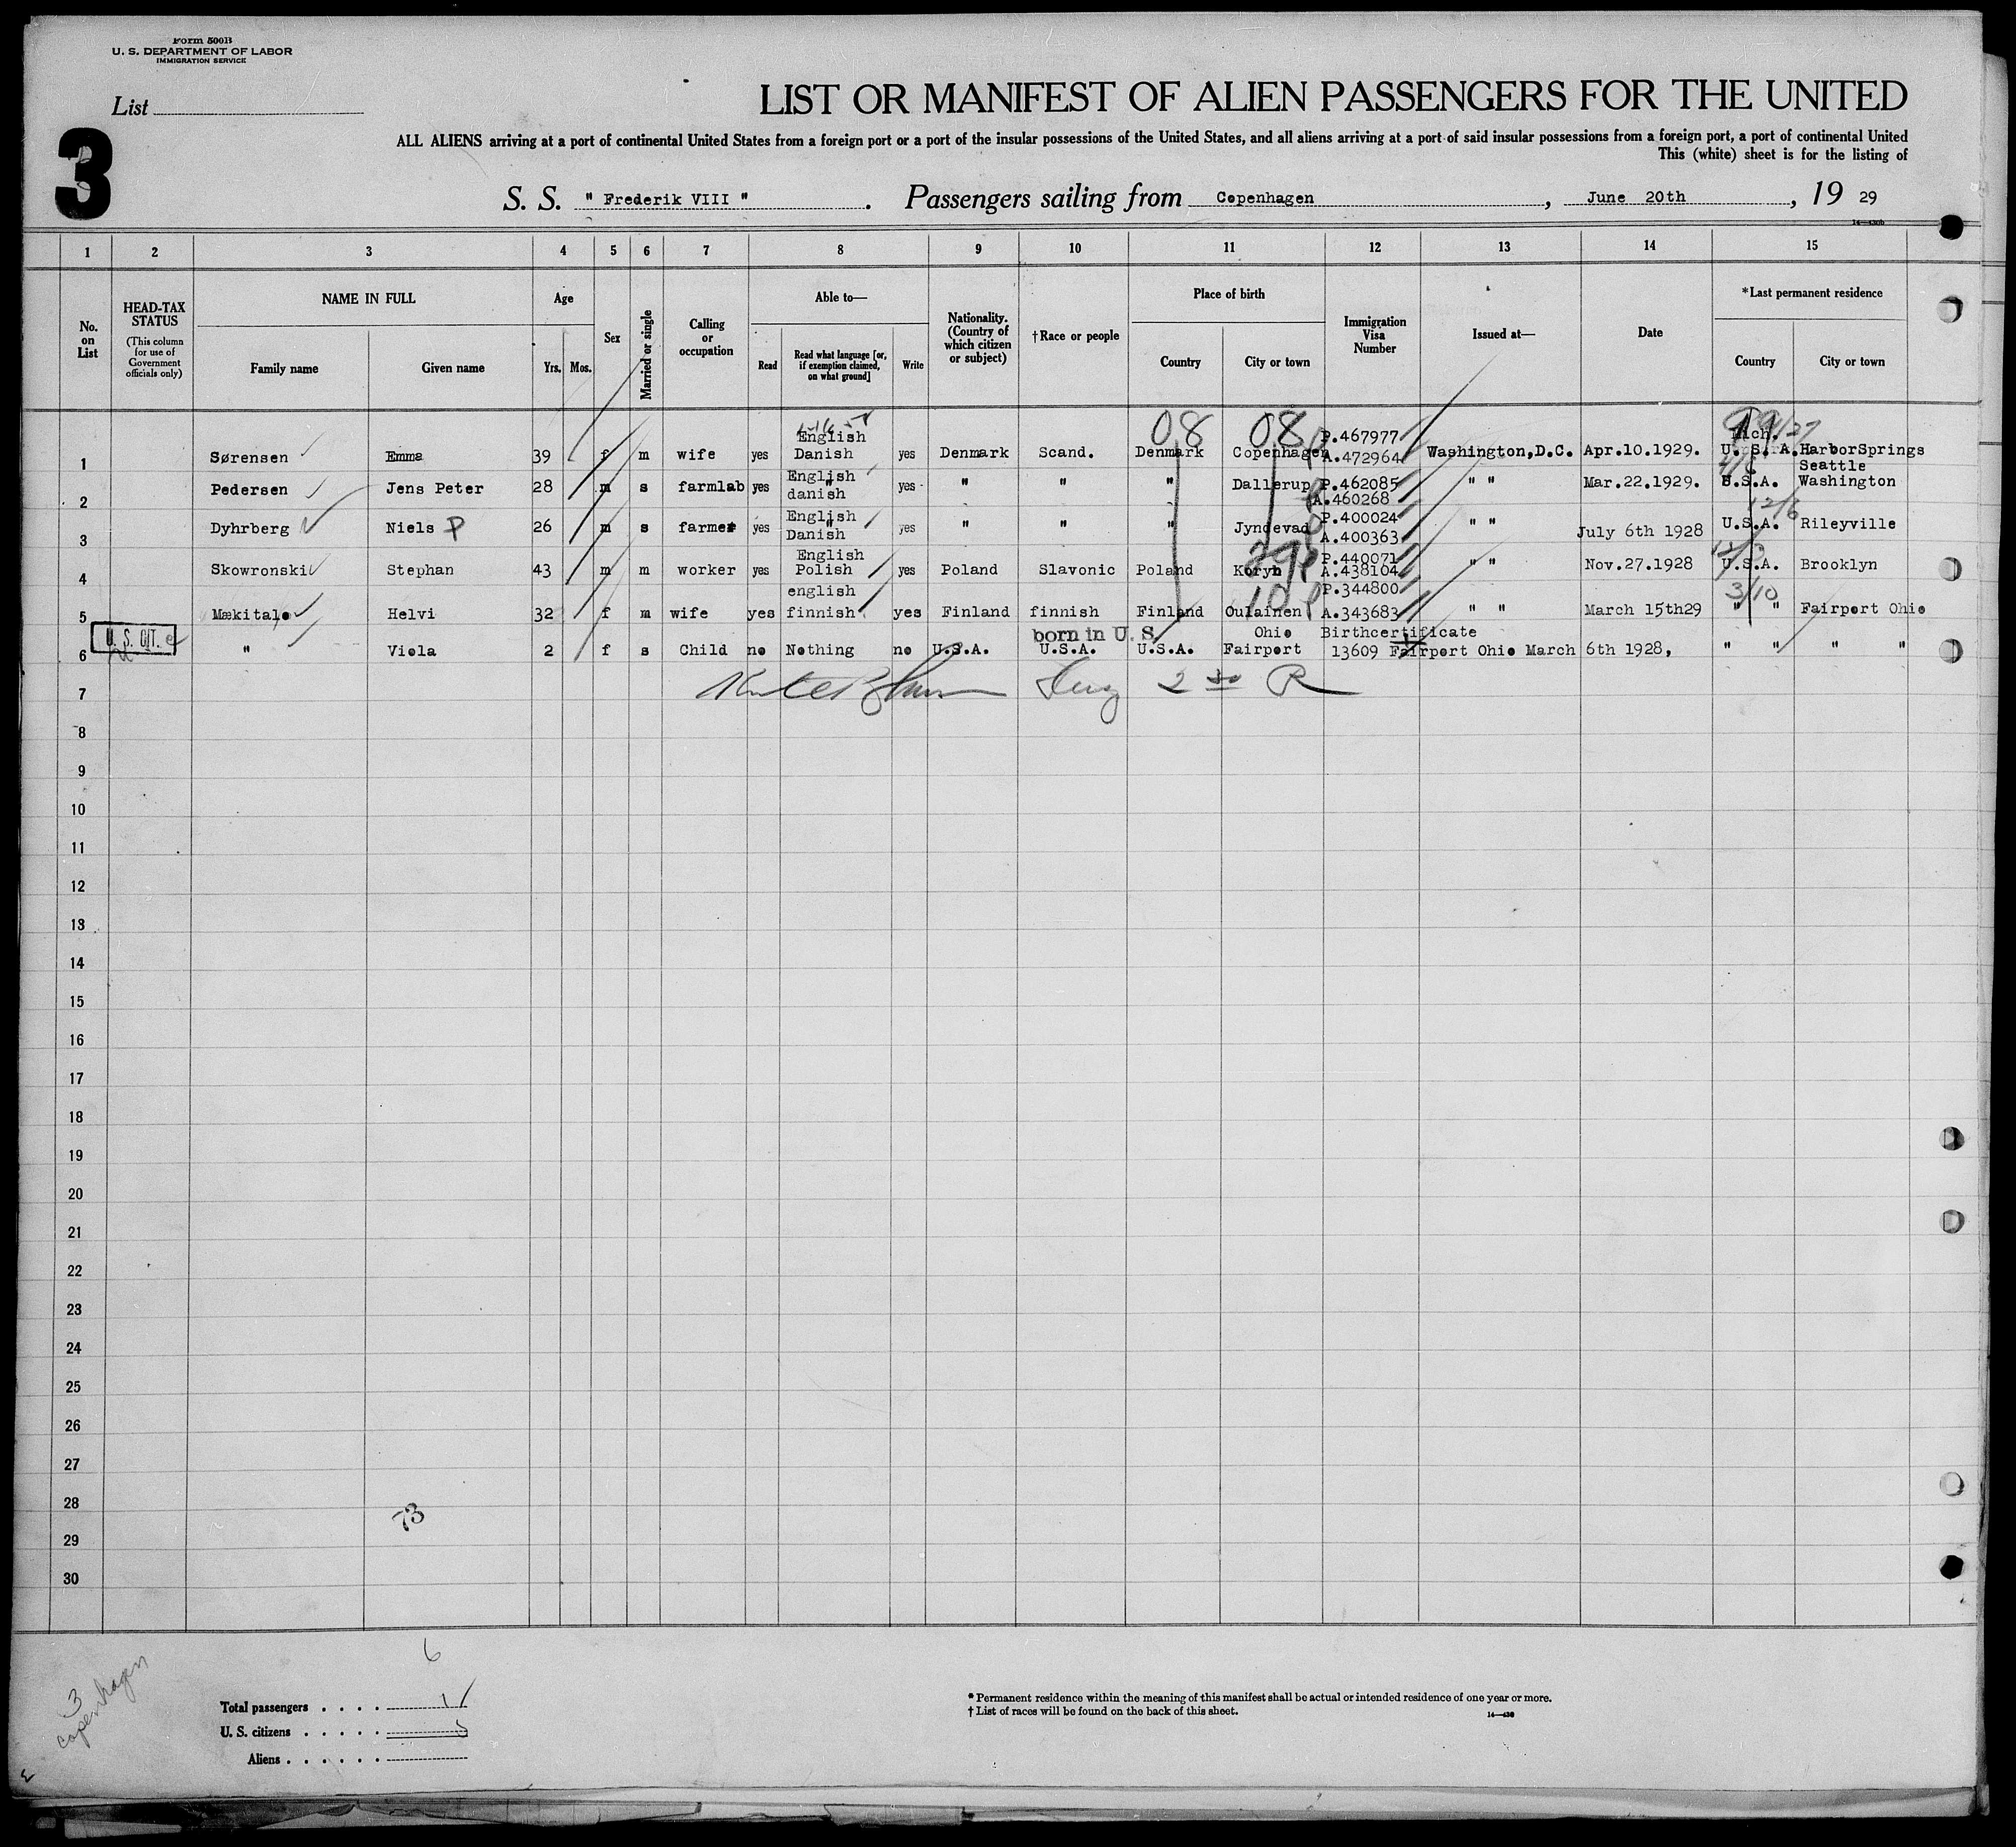 Form 500B
U. S. DEPARTMENT OF LABOR
IMMIGRATION SERVICE
List
3
LIST OR MANIFEST OF ALIEN PASSENGERS FOR THE UNITED
ALL ALIENS arriving at a port of continental United States from a foreign port or a port of the insular possessions of the United States, and all aliens arriving at a port of said insular possessions from a foreign port, a port of continental United
This (white) sheet is for the listing of
S. S. " Frederik VIII " . Passengers sailing from Copenhagen , June 20th , 19 29
1 2 3 4 5 6 7 8 9 10 11 12 13 14 15
No. on List
HEAD-TAX STATUS
(This column for use of Government officials only)
NAME IN FULL
Family name Given name
Age
Yrs. Mos.
Sex
Married or single
Calling or occupation
Able to—
Read Read what language [or, if exemption claimed, on what ground] Write
Nationality. (Country of which citizen or subject)
†Race or people
Place of birth
Country City or town
Immigration Visa Number
Issued at—
Date
*Last permanent residence
Country City or town
08 08
English P.467977 Mich.
1 Sørensen Emma 39 f m wife yes Danish yes Denmark Scand. Denmark Copenhagen A.472964 Washington,D.C. Apr.10.1929. U.S.A. HarborSprings
English Seattle
2 Pedersen Jens Peter 28 m s farmlab yes danish yes " " " Dallerup P.462085 " " Mar.22.1929. U.S.A. Washington
A.460268
English P.400024 12/6
3 Dyhrberg Niels P 26 m s farmer yes Danish yes " " " Jyndevad A.400363 " " July 6th 1928 U.S.A. Rileyville
English P.440071
4 Skowronski Stephan 43 m m worker yes Polish yes Poland Slavonic Poland Koryn A.438104 " " Nov.27.1928 U.S.A. Brooklyn
english 10 P.344800 3/10
5 Mækitalo Helvi 32 f m wife yes finnish yes Finland finnish Finland Oulainen A.343683 " " March 15th29 " " Fairport Ohio
U. S. CIT. born in U. S. Ohio Birthcertificate
6 " Viola 2 f s Child no Nothing no U.S.A. U.S.A. U.S.A. Fairport 13609 Fairport Ohio March 6th 1928, " " " "
7
8
9
10
11
12
13
14
15
16
17
18
19
20
21
22
23
24
25
26
27
28
73
29
30
6
3
Copenhagen
Total passengers . . . . 1
U. S. citizens . . . . . 5
Aliens . . . . . .
* Permanent residence within the meaning of this manifest shall be actual or intended residence of one year or more.
† List of races will be found on the back of this sheet.